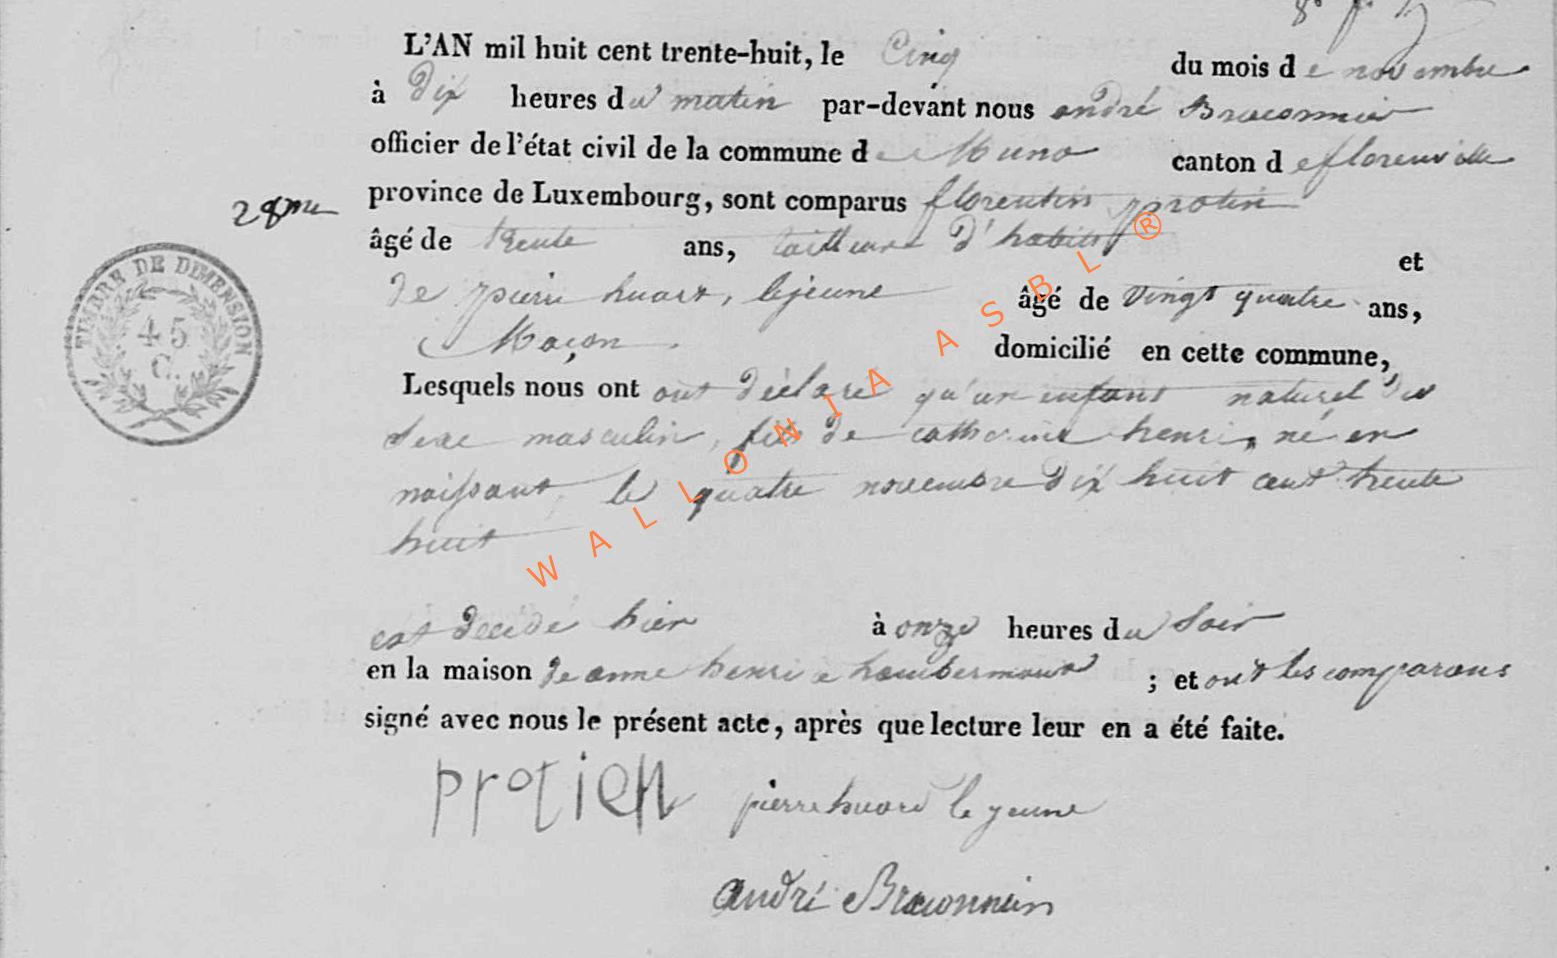 L'AN mil huit cent trente-huit, le Cinq du mois de novembre
à Dix heures du matin par-devant nous andré Braconnier
officier de l'état civil de la commune de Muno canton de florenville
28me
province de Luxembourg, sont comparus florentin protin
âgé de trente ans, tailleur d'habits et
de pierre huart, lejeune âgé de vingt quatre ans,
Maçon. domicilié en cette commune,
Lesquels nous ont ont déclaré qu'un enfant naturel du
Sexe masculin, fils de catherine henri, né en
naissant, le quatre novembre dix huit cent trente
huit
est décédé hier à onze heures du Soir
en la maison de anne henri à ; et ont les comparans
signé avec nous le présent acte, après que lecture leur en a été faite.
protien pierre huard le jeune
andré Braconnier
TIMBRE DE DIMENSION
45
C.
WALLONIA ASBL ®